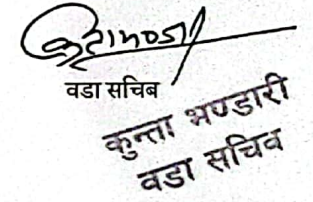 वडा सचिब
कुन्ता भण्डारी
वडा सचिव